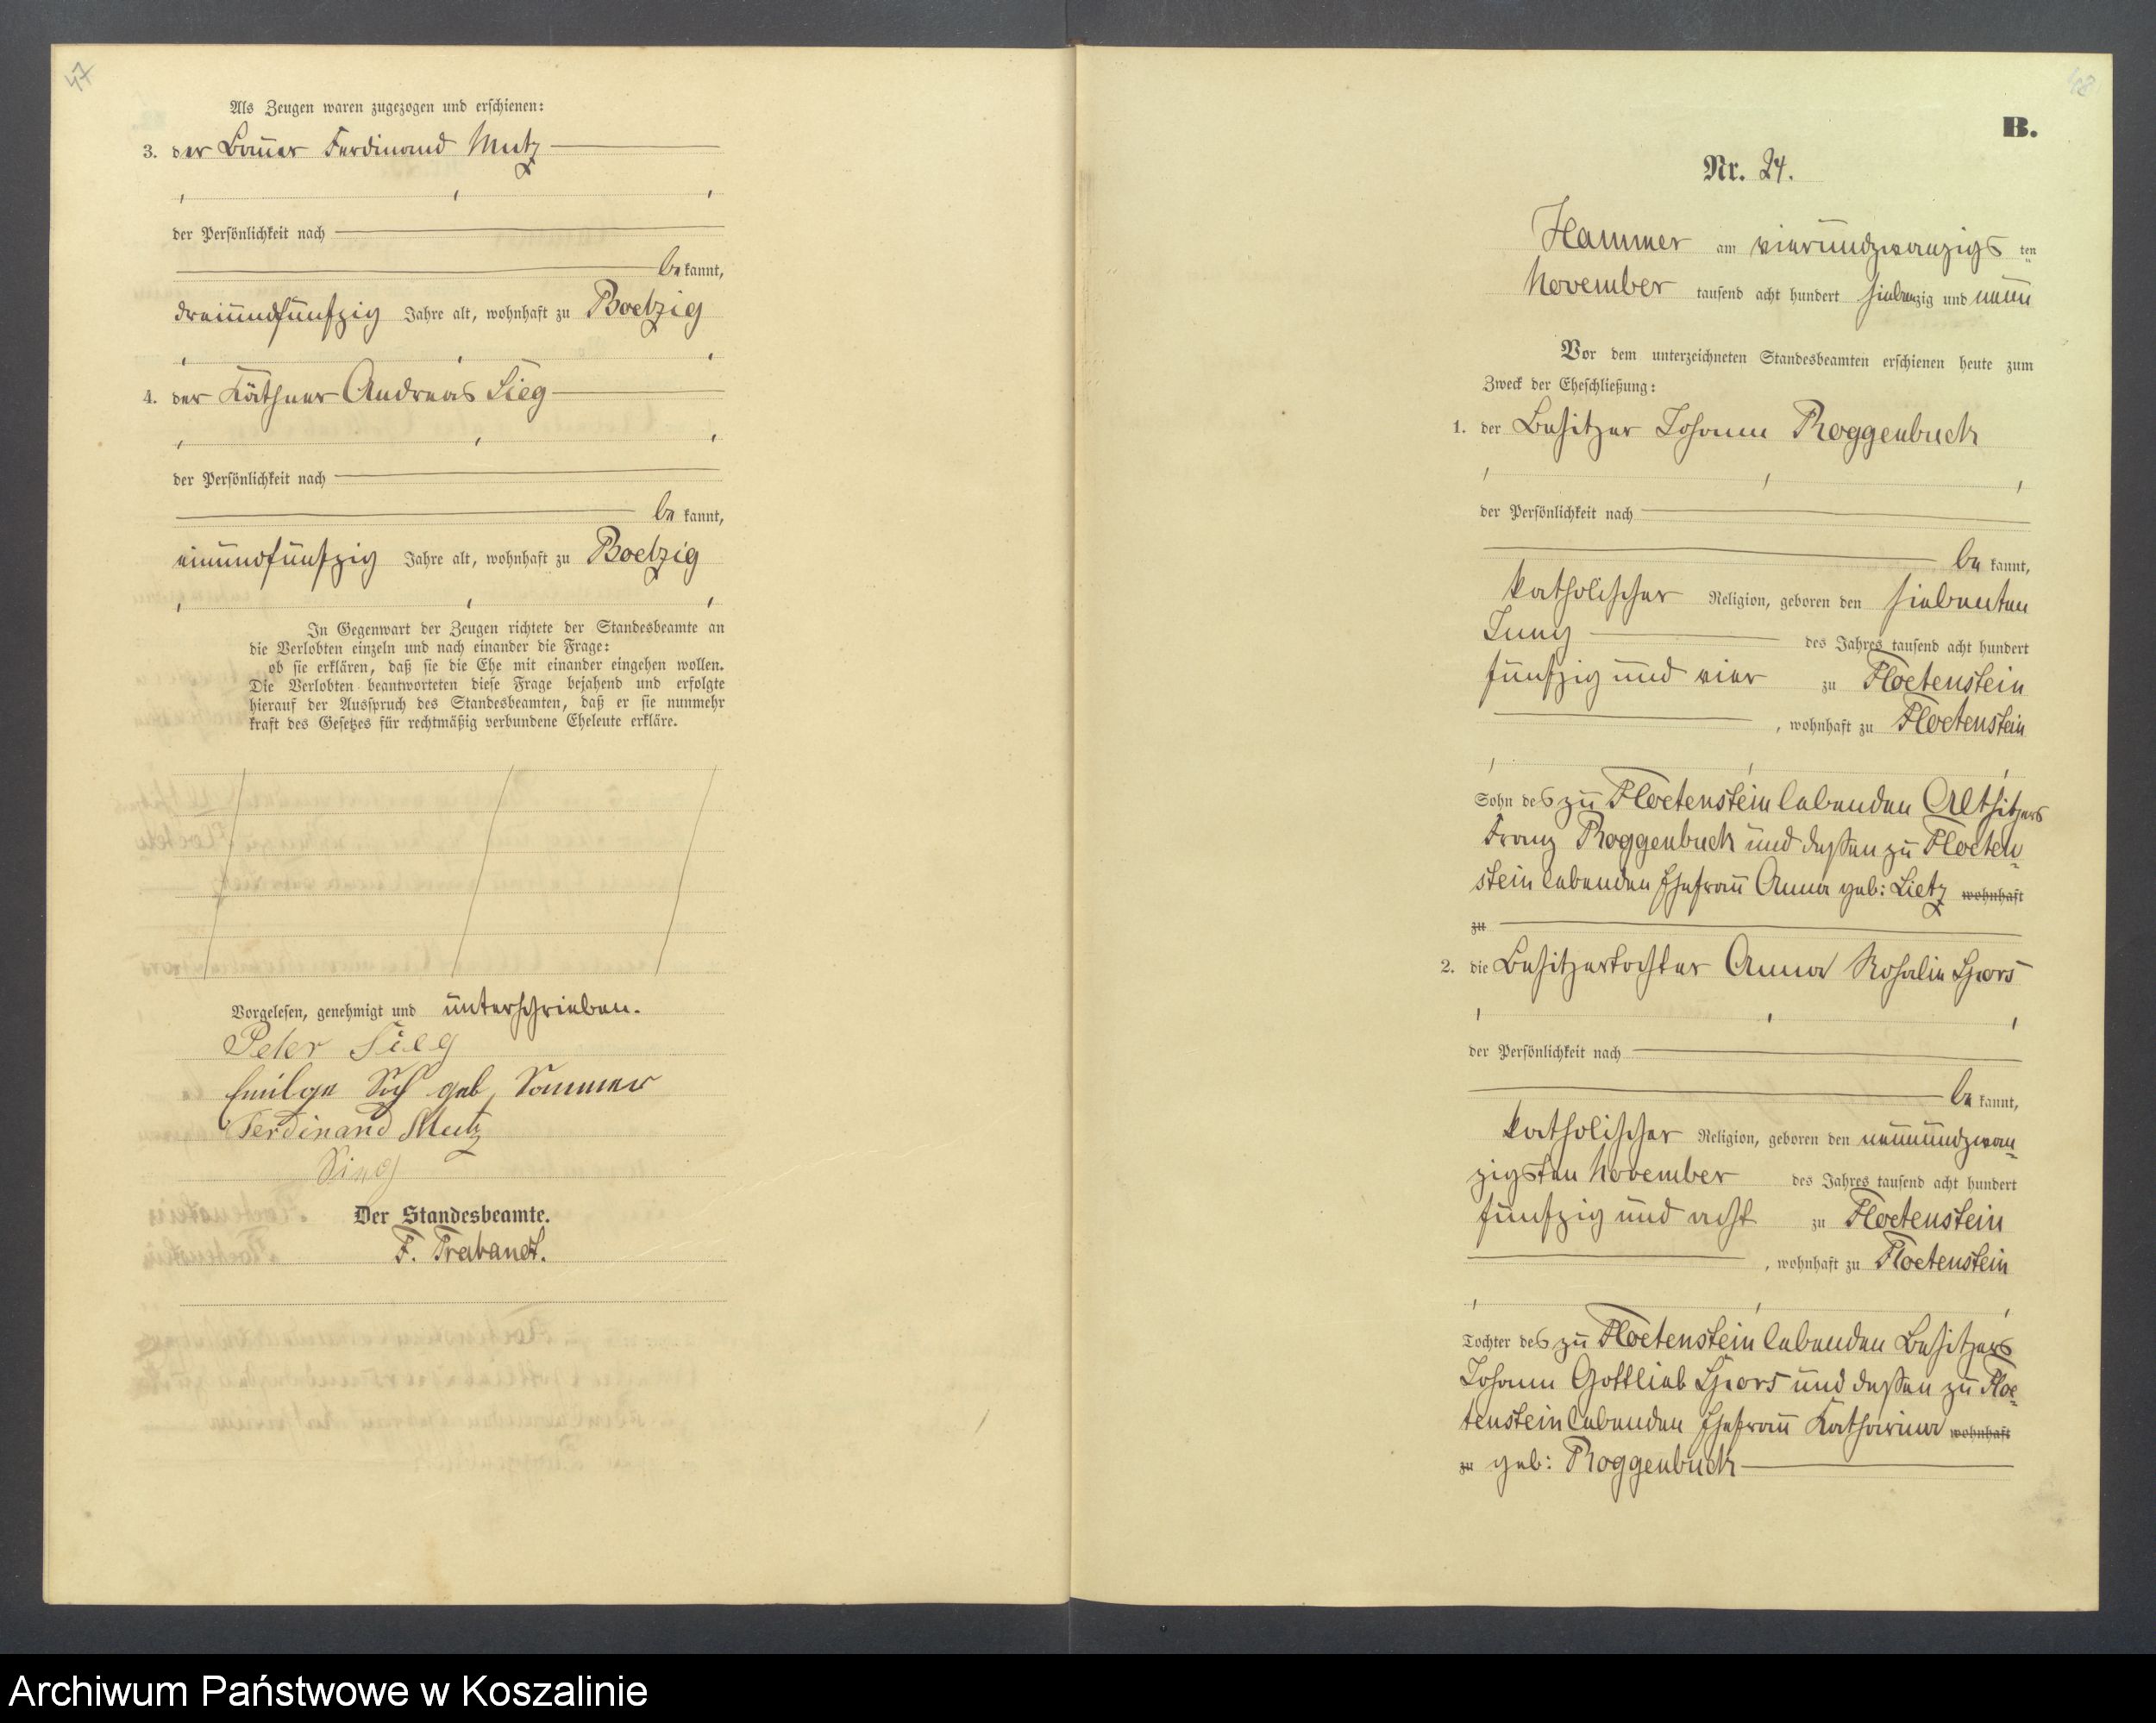 47
Als Zeugen waren zugezogen und erschienen:
3. der Bauer Ferdinand Mutz
der Persönlichkeit nach
be kannt,
dreiundfünfzig Jahre alt, wohnhaft zu Boetzig
4. der Käthner Andreas Sieg
der Persönlichkeit nach
be kannt,
einundfünfzig Jahre alt, wohnhaft zu Boetzig
In Gegenwart der Zeugen richtete der Standesbeamte an
die Verlobten einzeln und nach einander die Frage:
ob sie erklären, daß sie die Ehe mit einander eingehen wollen.
Die Verlobten beantworteten diese Frage bejahend und erfolgte
hierauf der Ausspruch des Standesbeamten, daß er sie nunmehr
kraft des Gesetzes für rechtmäßig verbundene Eheleute erkläre.
Vorgelesen, genehmigt und unterschrieben.
Peter Sieg
geb. Sommer
Ferdinand Mutz
Sieg
Der Standesbeamte.
F. Trabandt.
48
B.
Nr. 24.
Hammer am vierundzwanzigs ten
November tausend acht hundert siebenzig und neun
Vor dem unterzeichneten Standesbeamten erschienen heute zum
Zweck der Eheschließung:
1. der Besitzer Johann Roggenbuck
der Persönlichkeit nach
be kannt,
katholischer Religion, geboren den siebenten
Juny des Jahres tausend acht hundert
fünfzig und vier zu Floetenstein
, wohnhaft zu Floetenstein
Sohn des zu Floetenstein lebenden Altsitzers
Franz Roggenbuck und dessen zu Floeten-
stein lebenden Ehefrau Anna geb: Lietz wohnhaft
zu
2. die Besitzertochter Anna Rosalie Spors
der Persönlichkeit nach
be kannt,
katholischer Religion, geboren den neunundzwan-
zigsten November des Jahres tausend acht hundert
fünfzig und acht zu Floetenstein
, wohnhaft zu Floetenstein
Tochter des zu Floetenstein lebenden Besitzers
Johann Gottlieb Spors und dessen zu Floe-
tenstein lebenden Ehefrau Katharina wohnhaft
zu geb: Roggenbuck
Archiwum Państwowe w Koszalinie